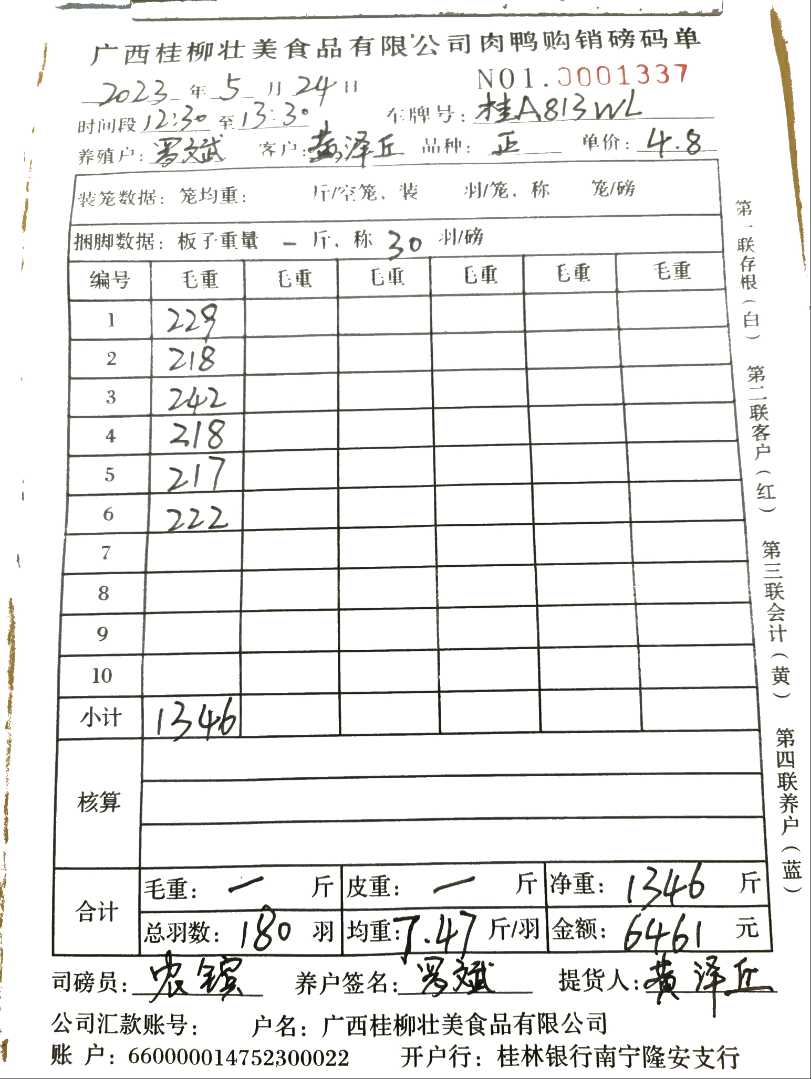 广西桂柳壮美食品有限公司肉鸭购销磅码单
2023年5月24日 NO1.0001337
时间段12:30至13:30 车牌号：桂A813WL
养殖户：罗斌 客户：黄泽丘 品种：正 单价：4.8
装笼数据：笼均重： 斤/空笼，装 羽/笼，称 笼/磅
捆脚数据：板子重量 一 斤，称 30 羽/磅
编号 毛重 毛重 毛重 毛重 毛重 毛重
1 229
2 218
3 242
4 218
5 217
6 222
7
8
9
10
小计 1346
核算
合计 毛重：一 斤 皮重：一 斤 净重：1346 斤
总羽数：180 羽 均重：7.47 斤/羽 金额：6461 元
司磅员：农镔 养户签名：罗斌 提货人：黄泽丘
公司汇款账号： 户名：广西桂柳壮美食品有限公司
账 户：660000014752300022 开户行：桂林银行南宁隆安支行
第一联存根（白） 第二联客户（红） 第三联会计（黄） 第四联养户（蓝）